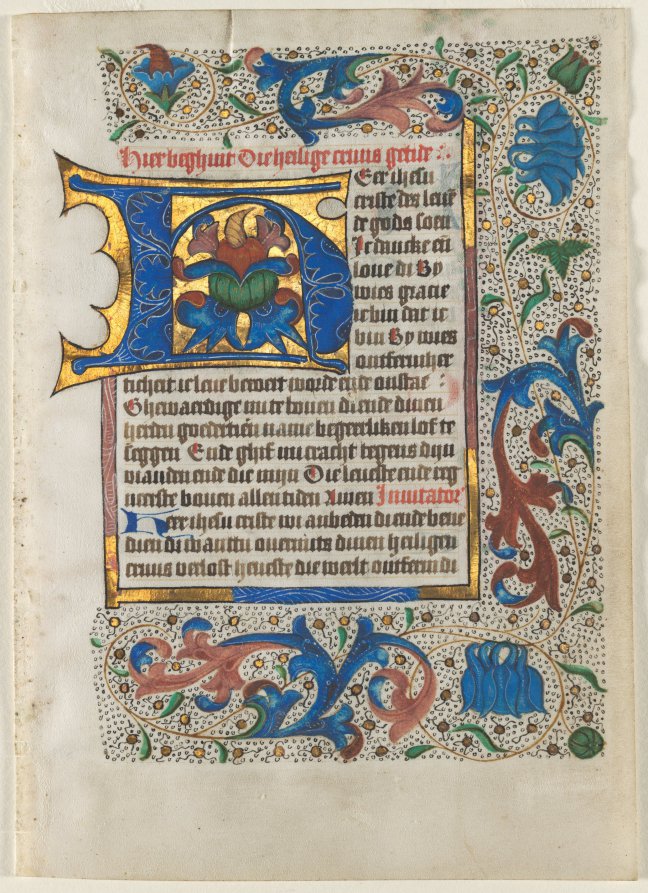 Hier beghint Die heilige cruus getide
HEer ihesu
criste des leuē
de gods soen
Ic dancke eñ
loue di By
wies gracie
ic bin dat ic
bin By wies
ontfermher
ticheit ic leue beroert worde ende onstae
Ghewaerdige mi te louen di ende dinen
heilen goedertien name begeerliken lof te
seggen Ende ghif mi cracht tegens dijn
vianden ende die mijn Die leueste ende reg
neerste bouen allen tiden Amen Inuitator
Heer ihesu criste wi anbeden di ende bene
dien di want tu ouermits dinen heiligen
cruus verlost heueste die werlt ontferm di